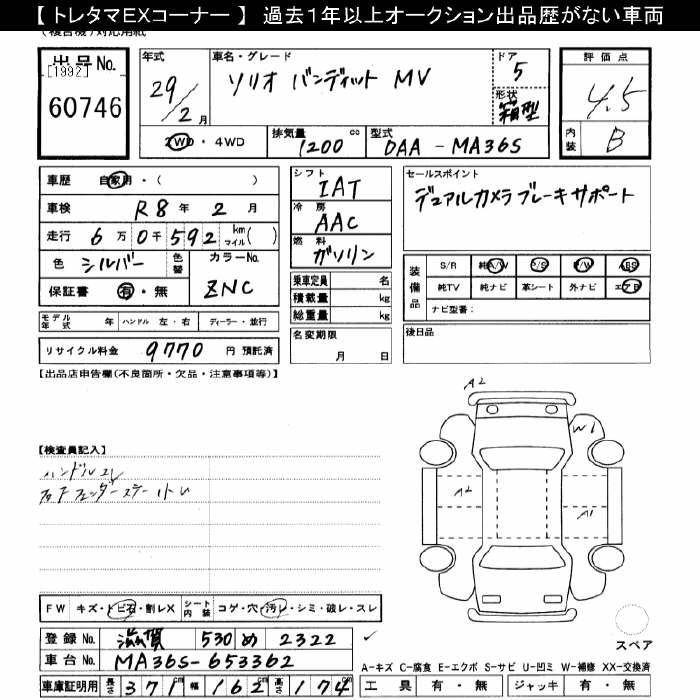 【トレタマEXコーナー】 過去1年以上オークション出品歴がない車両
(複合機)対応用紙
出品No.
[1992]
60746
年式
29/2月
車名・グレード
ソリオ バンディット MV
ドア
5
形状
箱型
評価点
4.5
内装 B
2WD・4WD
排気量 1200 cc
型式 DAA-MA36S
車歴 自家用・( )
車検 R8年 2月
走行 6万0千592 km マイル( )
色 シルバー 色替 カラーNo. ZNC
保証書 有・無
モデル年式 年 ハンドル 左・右 ディーラー・並行
リサイクル料金 9770 円 預託済
シフト IAT
冷房 AAC
燃料 ガソリン
乗車定員 名
積載量 kg
総重量 kg
名変期限
月 日
セールスポイント
デュアルカメラブレーキサポート
装備品
S/R 純A/W P/S P/W ABS
純TV 純ナビ 革シート 外ナビ エアB
ナビ型番:
後日品
【出品店申告欄(不良箇所・欠品・注意事項等)】
【検査員記入】
ハンドルスレ
A2
W1
A2
A1
FW キズ・トビ石・割レX シート内装 コゲ・穴・汚レ・シミ・破レ・スレ
登録No. 滋賀 530 め 2322
車台No. MA36S-653362
車庫証明用 長さ 371cm 幅 162cm 高さ 174cm
スペア
A-キズ C-腐食 E-エクボ S-サビ U-凹ミ W-補修 XX-交換済
工具 有・無 ジャッキ 有・無